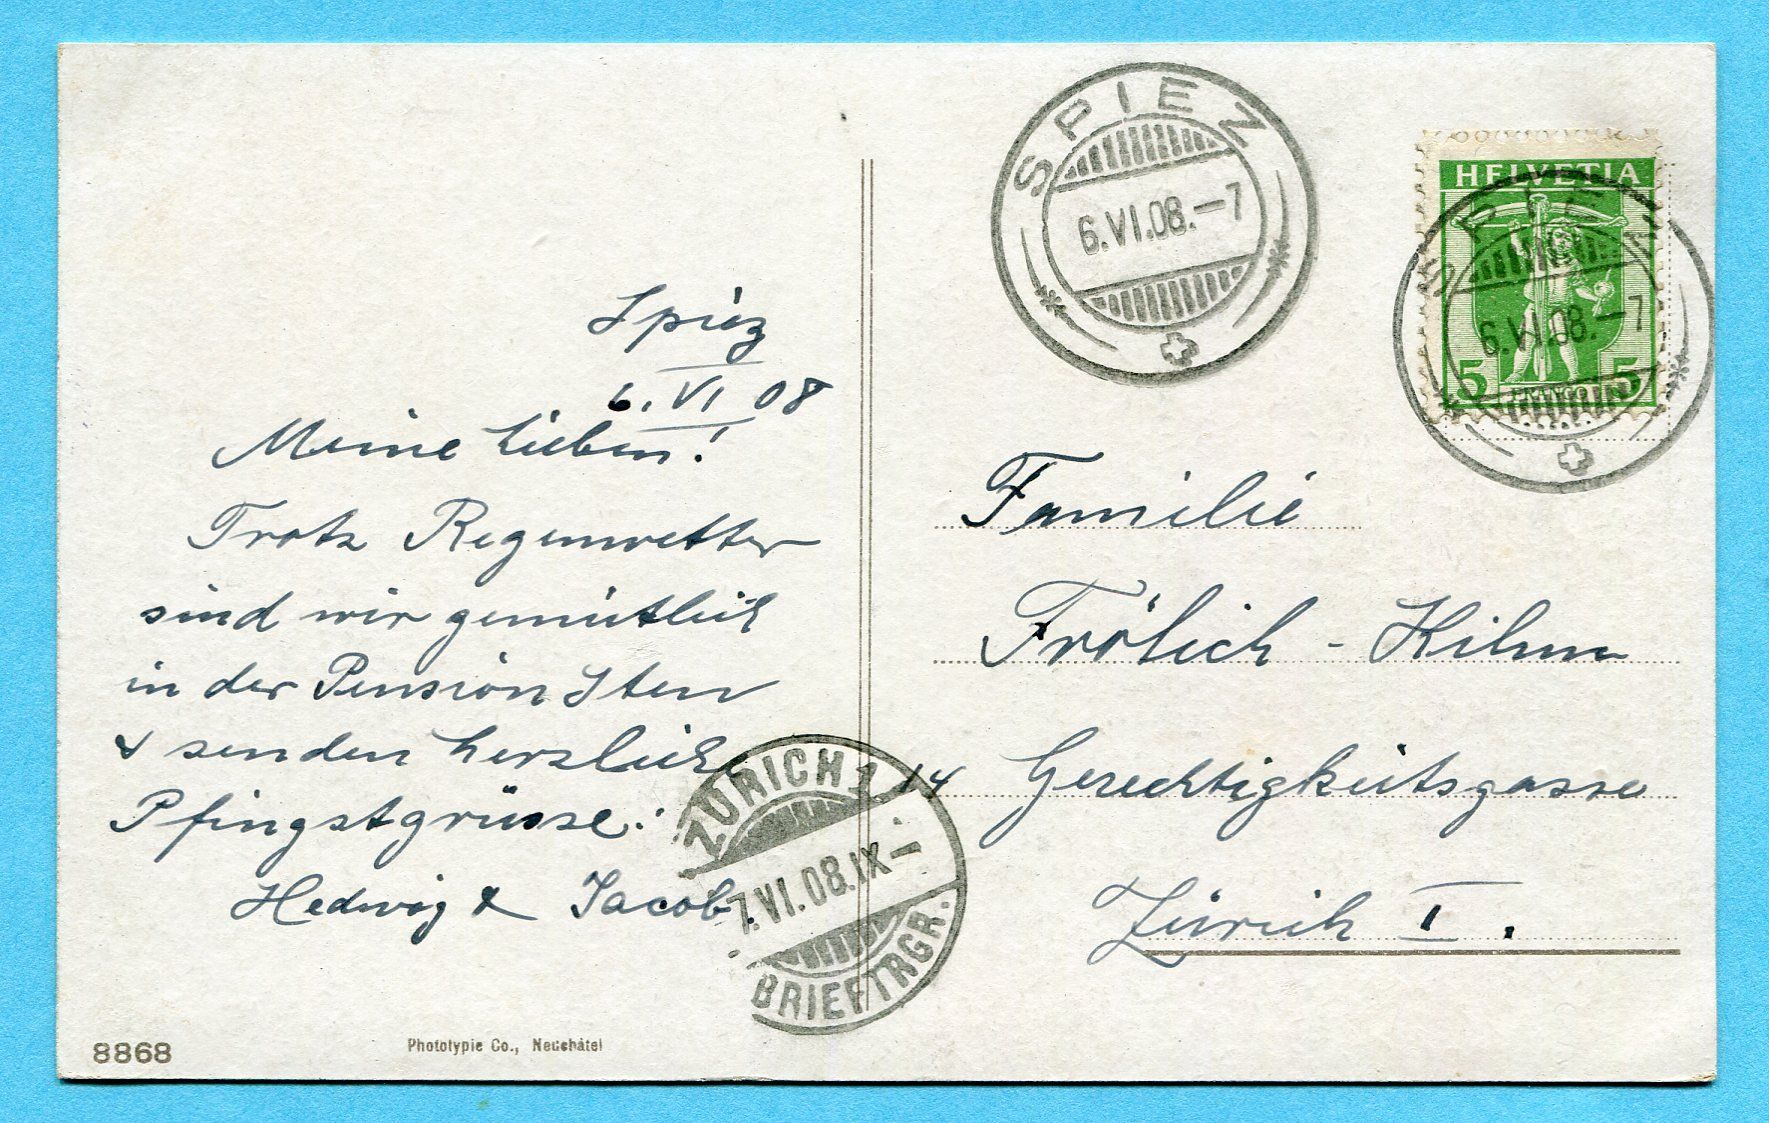 Spiez
6. VI 08
Meine Lieben!
Trotz Regenwetter
sind wir gemütlich
in der Pension Iten
& senden herzliche
Pfingstgrüsse.
Hedwig & Jacob.
8868
Phototypie Co., Neuchâtel
SPIEZ
6.VI.08.-7
HELVETIA
5 FRANCO 5
SPIEZ
6.VI.08.-7
Familie
Frölich - Kihm
14 Gerechtigkeitsgasse
Zürich I.
ZÜRICH 1
7.VI.08.IX-
BRIEFTRGR.